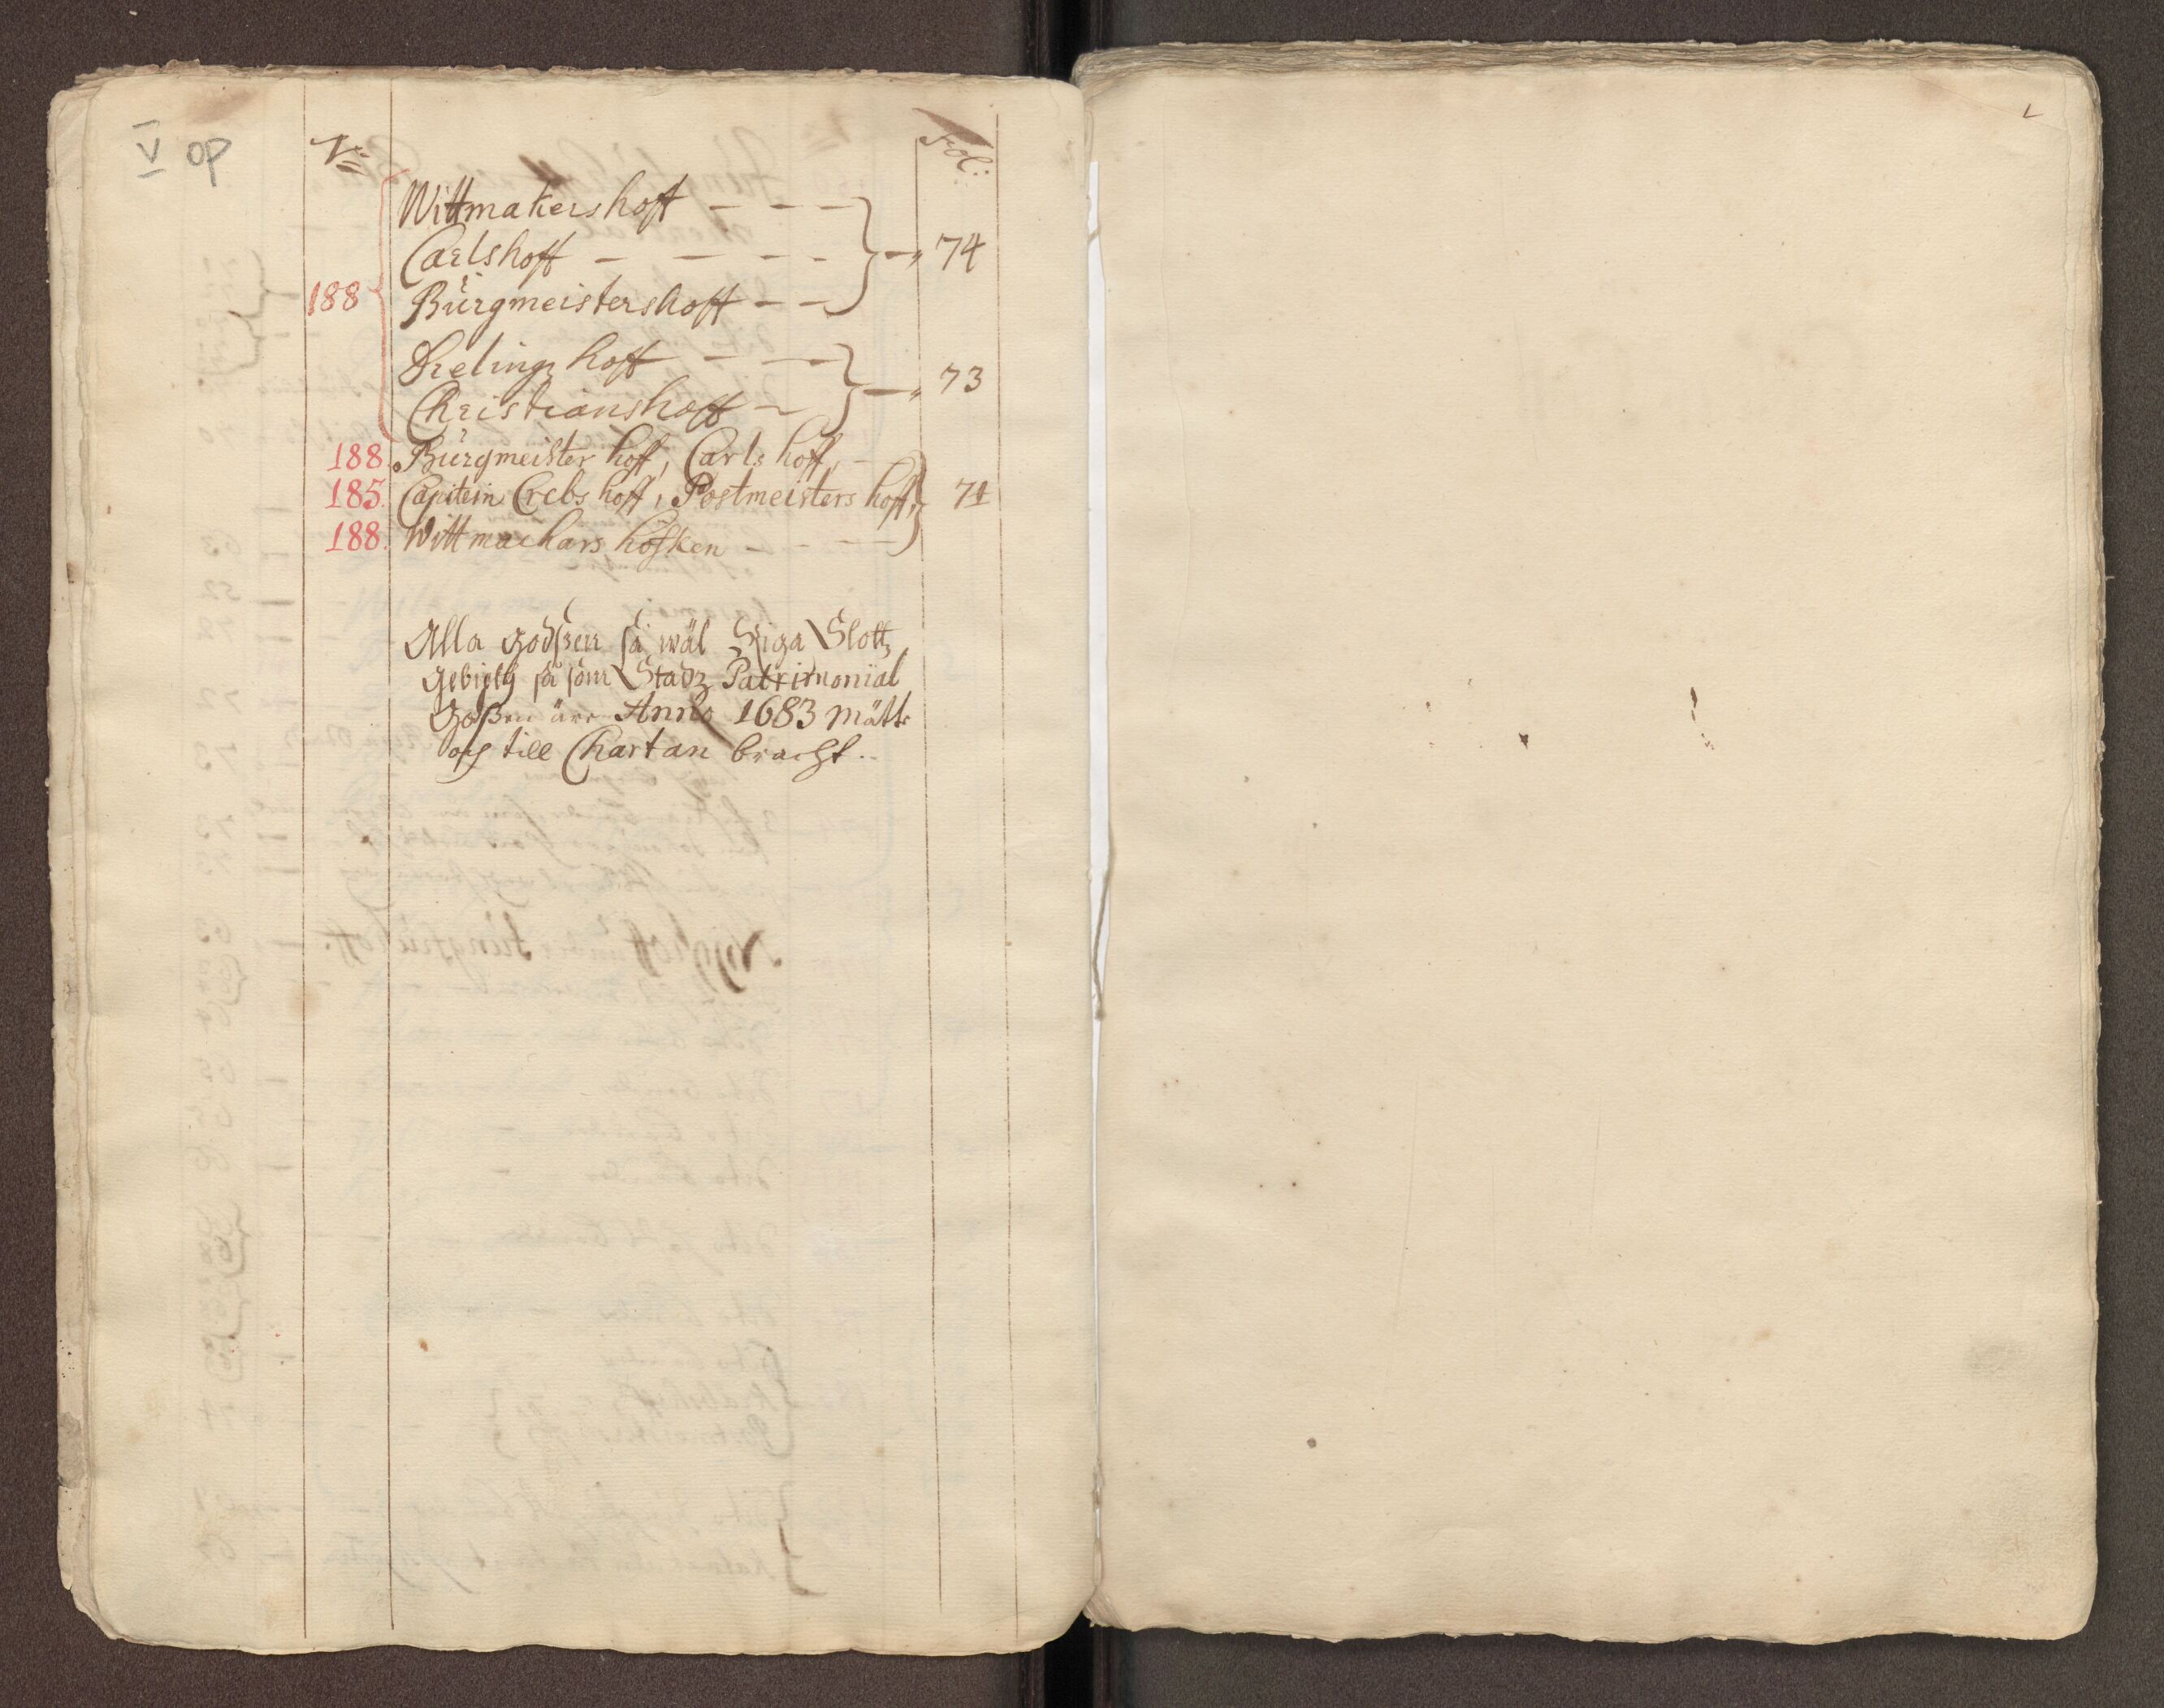 V op
N: Fol:
Wittmakers hoff — — —
Carlshoff — — — — 74
188 Bürgmeistershoff — —
Drelingz hoff — —
Christianshoff — 73
188. Bürgmeister hoff, Carls hoff, —
185. Capitein Crebs hoff, Postmeisters hoff, 71
188. Wittmachars höfken — — —
Alla godßen så wäl Riga Slottz
gebieth så som Stadz Patrimonial
Godßen äre Anno 1683 mätte
och till Chartan bracht..